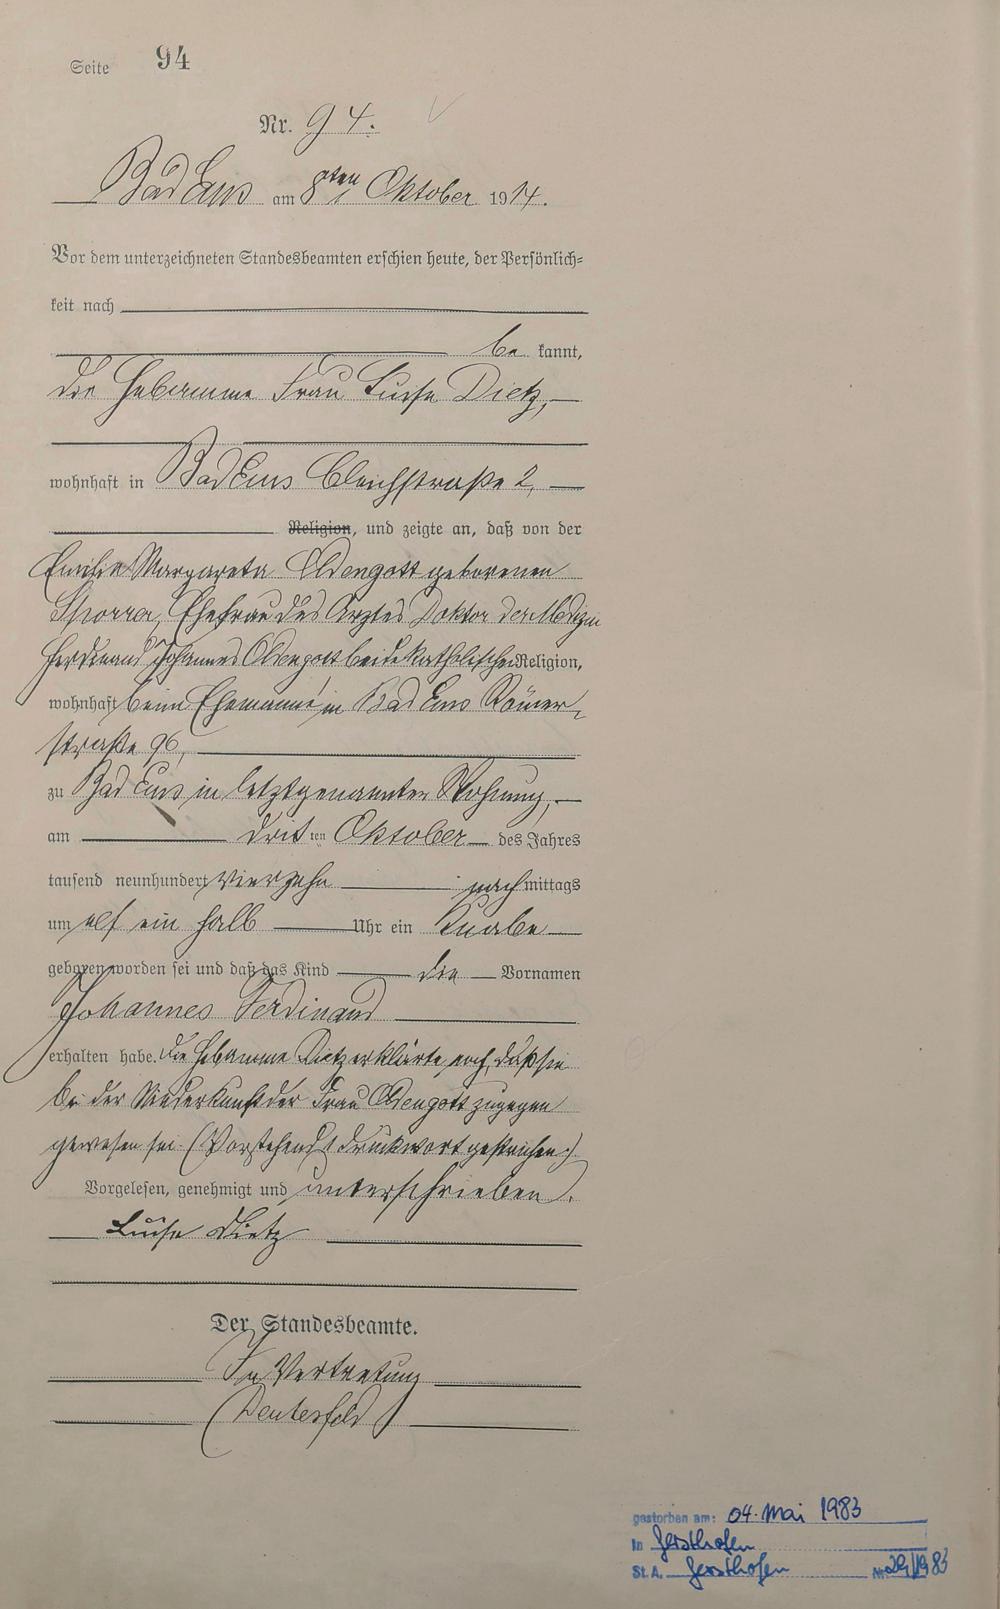 Seite 94
Nr. 94.
Bad Ems am 8ten Oktober 1914.
Vor dem unterzeichneten Standesbeamten erschien heute, der Persönlich=
keit nach
be kannt,
die Hebamme Frau Luise Dietz,
wohnhaft in Bad Ems Bleichstraße 2,
Religion, und zeigte an, daß von der
Emilie Margareta Oldengott geborenen
Ehefrau des Arztes Doktor der Medizin
Ferdinand Johannes Oldengott beide katholischer Religion,
wohnhaft beim Ehemanne in Bad Ems Römer
straße 96,
zu Bad Ems in letztgenannter Wohnung,
am dritten Oktober des Jahres
tausend neunhundert vierzehn nachmittags
um elf ein halb Uhr ein Knabe
geboren worden sei und daß das Kind die Vornamen
Johannes Ferdinand
erhalten habe. Die Hebamme Dietz erklärte noch, daß sie
bei der Niederkunft der Frau Oldengott zugegen
gewesen sei. (Vorstehend 1 Druckwort gestrichen).
Vorgelesen, genehmigt und unterschrieben.
Luise Dietz
Der Standesbeamte.
In Vertretung
gestorben am: 04. Mai 1983
in Gersthofen
St. A. Gersthofen Nr. 29/1983